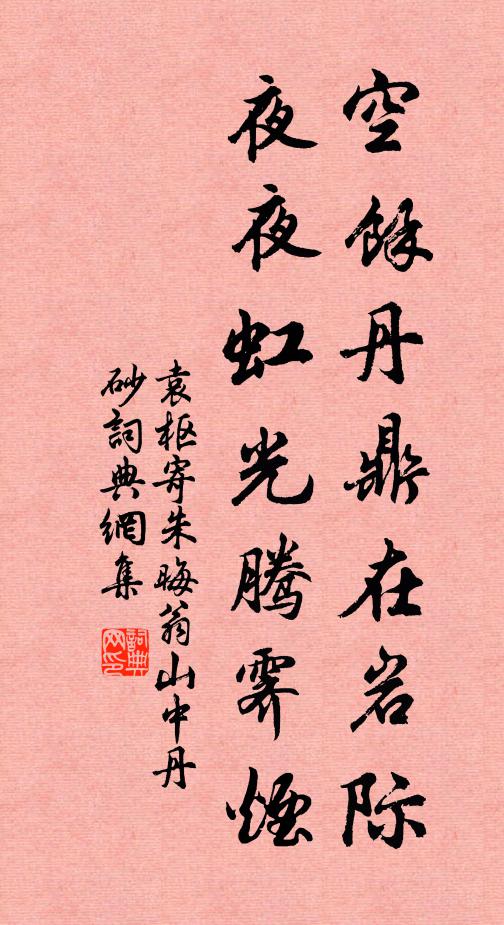 空餘丹鼎在岩际
夜夜虹光腾霁煙
袁枢寄朱晦翁山中丹
砂詞典網集
詞典網印